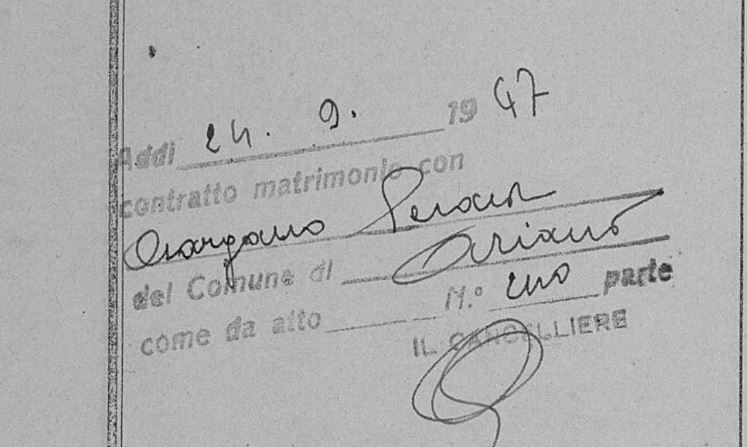 Addì 24. 9. 1947
contratto matrimonio con
del Comune di Ariano
come da atto N.° uno parte
IL CANCELLIERE